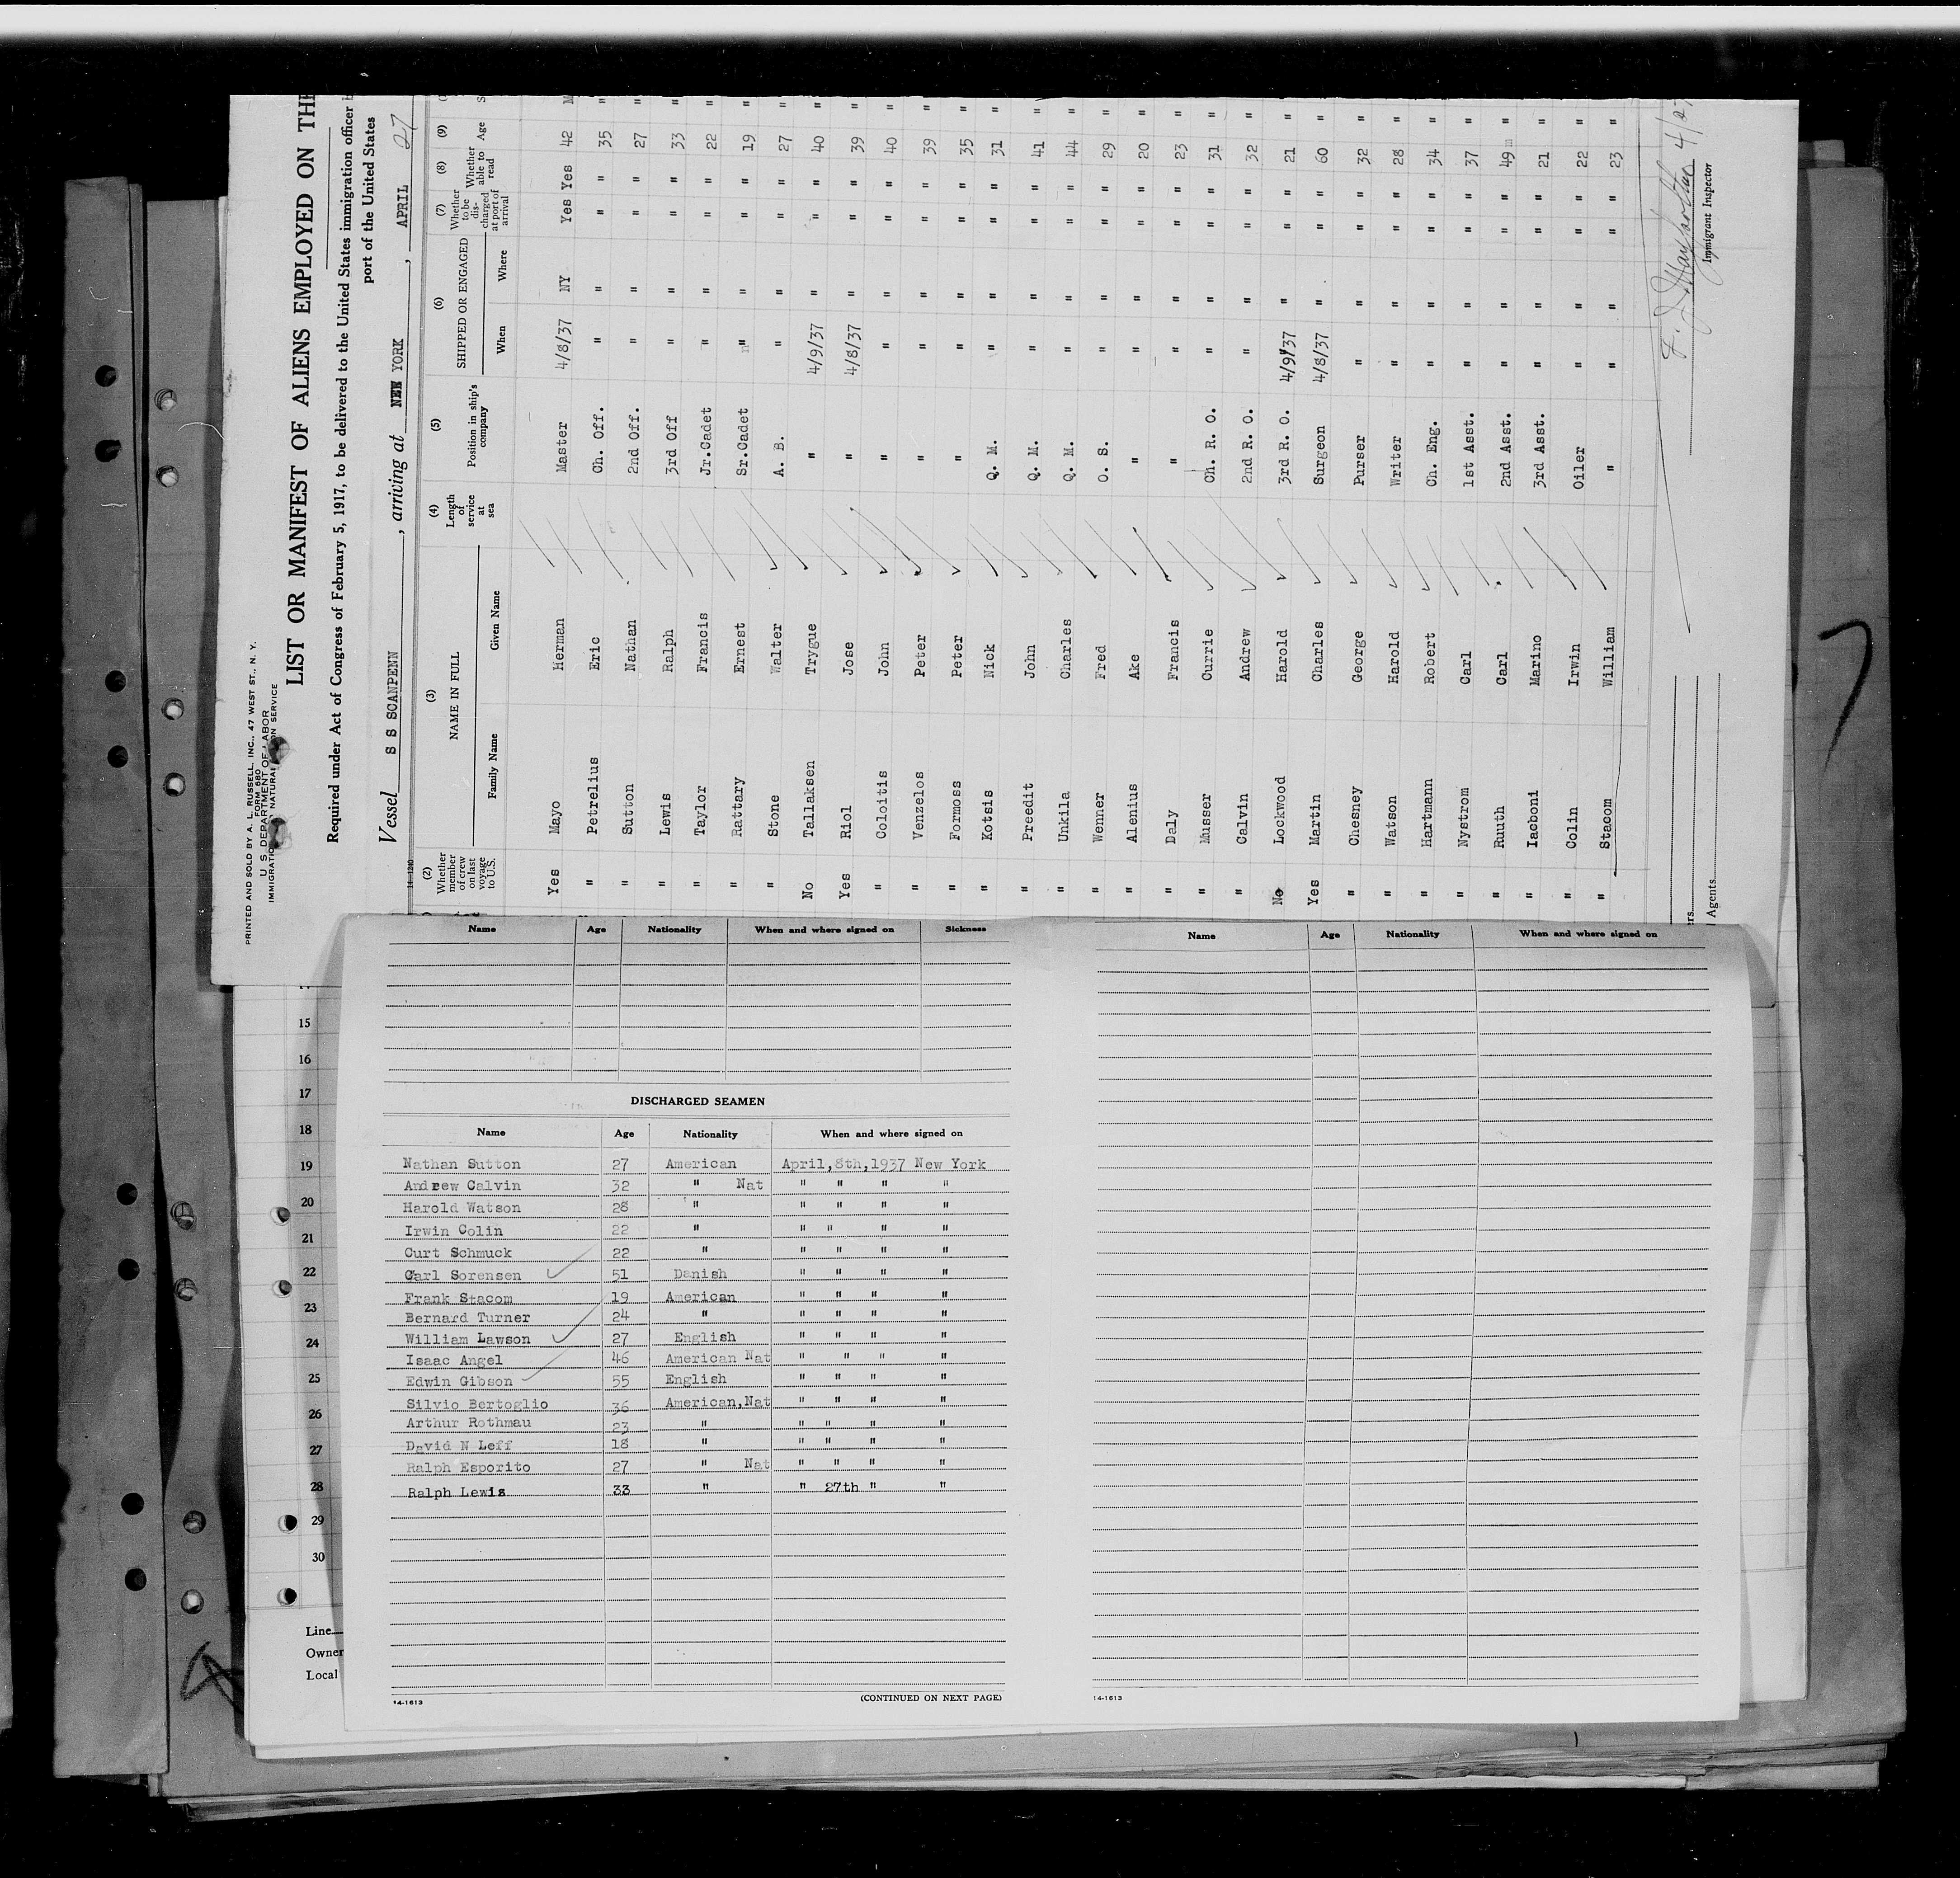 PRINTED AND SOLD BY A. L. RUSSELL, INC., 47 WEST ST., N. Y.
FORM 680
U. S. DEPARTMENT OF LABOR
IMMIGRATION NATURALIZATION SERVICE
LIST OR MANIFEST OF ALIENS EMPLOYED ON THE
Required under Act of Congress of February 5, 1917, to be delivered to the United States immigration officer
port of the United States
Vessel S S SCANPENN, arriving at NEW YORK, APRIL 27
14-1240
(2) Whether member of crew on last voyage to U.S. (3) NAME IN FULL Family Name Given Name (4) Length of service at sea (5) Position in ship's company (6) SHIPPED OR ENGAGED When Where (7) Whether to be discharged at port of arrival (8) Whether able to read (9) Age
Yes Mayo Herman Master 4/8/37 NY Yes Yes 42 M
" Petrelius Eric Ch. Off. " " " " 35 "
" Sutton Nathan 2nd Off. " " " " 27 "
" Lewis Ralph 3rd Off " " " " 33 "
" Taylor Francis Jr.Cadet " " " " 22 "
" Rattary Ernest Sr.Cadet " " " " 19 "
" Stone Walter A. B. " " " " 27 "
No Tallaksen Trygue " 4/9/37 " " " 40 "
Yes Riol Jose " 4/8/37 " " " 39 "
" Coloitis John " " " " " 40 "
" Venzelos Peter " " " " " 39 "
" Formoss Peter " " " " " 35 "
" Kotsis Nick Q. M. " " " " 31 "
" Preedit John Q. M. " " " " 41 "
" Unkila Charles Q. M. " " " " 44 "
" Wenner Fred O. S. " " " " 29 "
" Alenius Ake " " " " " 20 "
" Daly Francis " " " " " 23 "
" Musser Currie Ch. R. O. " " " " 31 "
" Calvin Andrew 2nd R. O. " " " " 32 "
No Lockwood Harold 3rd R. O. 4/9/37 " " " 21 "
Yes Martin Charles Surgeon 4/8/37 " " " 60 "
" Chesney George Purser " " " " 32 "
" Watson Harold Writer " " " " 28 "
" Hartmann Robert Ch. Eng. " " " " 34 "
" Nystrom Carl 1st Asst. " " " " 37 "
" Ruuth Carl 2nd Asst. " " " " 49 "
" Iacboni Marino 3rd Asst. " " " " 21 "
" Colin Irwin Oiler " " " " 22 "
" Stacom William " " " " " 23 "
4/27
Immigrant Inspector
Agents
15
16
17
18
19
20
21
22
23
24
25
26
27
28
29
30
Line
Owner
Local
Name Age Nationality When and where signed on Sickness
DISCHARGED SEAMEN
Name Age Nationality When and where signed on
Nathan Sutton 27 American April,8th,1937 New York
Andrew Calvin 32 " Nat " " " "
Harold Watson 28 " " " " "
Irwin Colin 22 " " " " "
Curt Schmuck 22 " " " " "
Carl Sorensen 51 Danish " " " "
Frank Stacom 19 American " " " "
Bernard Turner 24 " " " " "
William Lawson 27 English " " " "
Isaac Angel 46 American Nat " " " "
Edwin Gibson 55 English " " " "
Silvio Bertoglio 36 American,Nat " " " "
Arthur Rothmau 23 " " " " "
David N Leff 18 " " " " "
Ralph Esporito 27 " Nat " " " "
Ralph Lewis 33 " " 27th " "
14-1613
(CONTINUED ON NEXT PAGE)
Name Age Nationality When and where signed on
14-1613